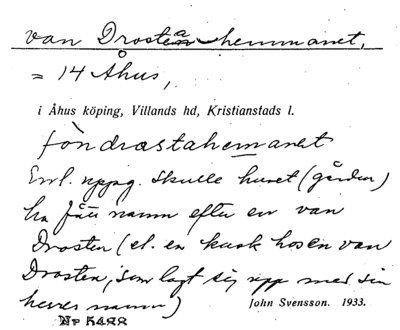 van Drostenahemmanet,
= 14 Åhus,
i Åhus köping, Villands hd, Kristianstads l.
fòndrastahemanet
Enl. uppg. skulle huset (gården)
ha fått namn efter en van
Drosten (el. en karl hos en van
Drosten, som lagt sig upp med sin
herres namn)
John Svensson. 1933.
Nr 5488